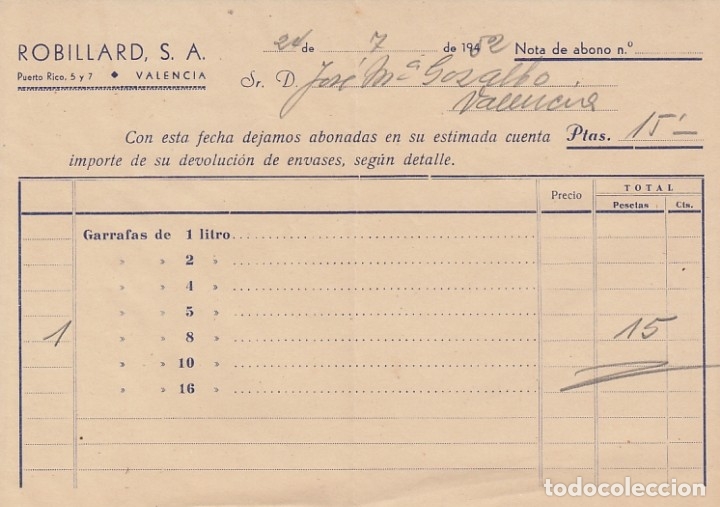 ROBILLARD, S. A.
Puerto Rico, 5 y 7 ◆ VALENCIA
24 de 7 de 194 52 Nota de abono n.º
Sr. D. José Mª Gozalbo
Valencia
Con esta fecha dejamos abonadas en su estimada cuenta Ptas. 15'-
importe de su devolución de envases, según detalle.
Precio TOTAL
Pesetas Cts.
Garrafas de 1 litro
» » 2 »
» » 4 »
» » 5 »
1 » » 8 » 15
» » 10 »
» » 16 »
todocoleccion.net